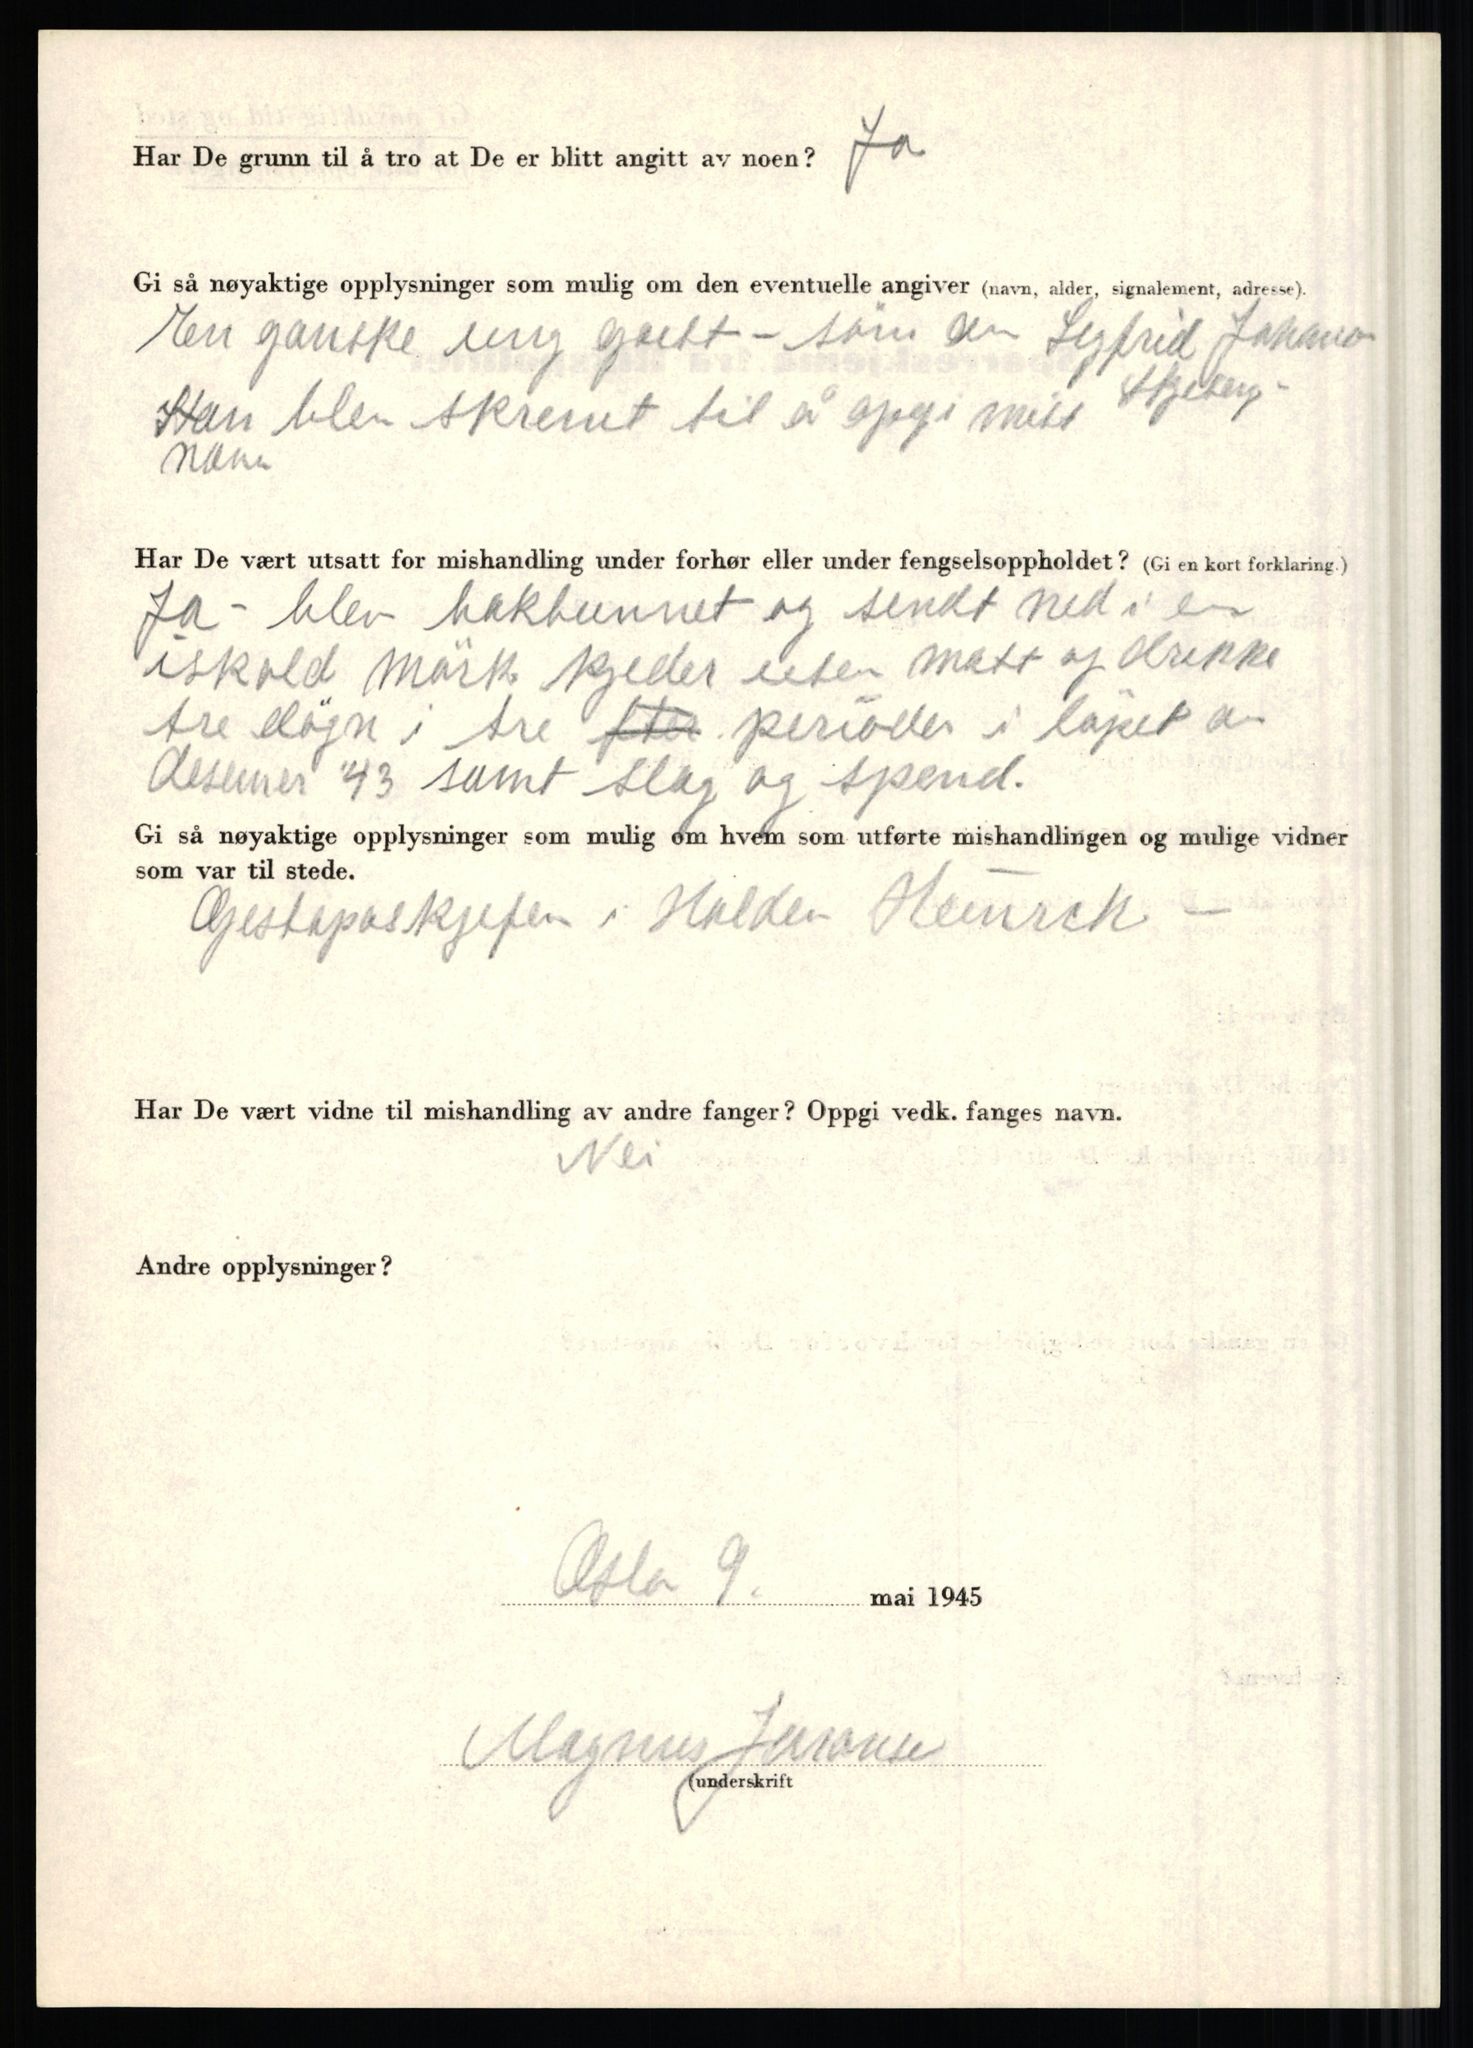 Har De grunn til å tro at De er blitt angitt av noen? Ja
Gi så nøyaktige opplysninger som mulig om den eventuelle angiver (navn, alder, signalement, adresse).
En ganske ung gutt - sön av Sigfrid Johans
Skjeberg -
Han blev skremt til å opgi mitt
navn
Har De vært utsatt for mishandling under forhør eller under fengselsoppholdet? (Gi en kort forklaring.)
Ja - blev bakbunnet og sendt ned i en
iskold mörk kjeder uten matt og drikke
tre dögn i tre perioder i löpet av
desemer '43 samt slag og spend.
Gi så nøyaktige opplysninger som mulig om hvem som utførte mishandlingen og mulige vidner
som var til stede.
Gjestaposkjefen i Halden Heinrch -
Har De vært vidne til mishandling av andre fanger? Oppgi vedk. fanges navn.
Nei
Andre opplysninger?
Oslo 9. mai 1945
Magnus
(underskrift